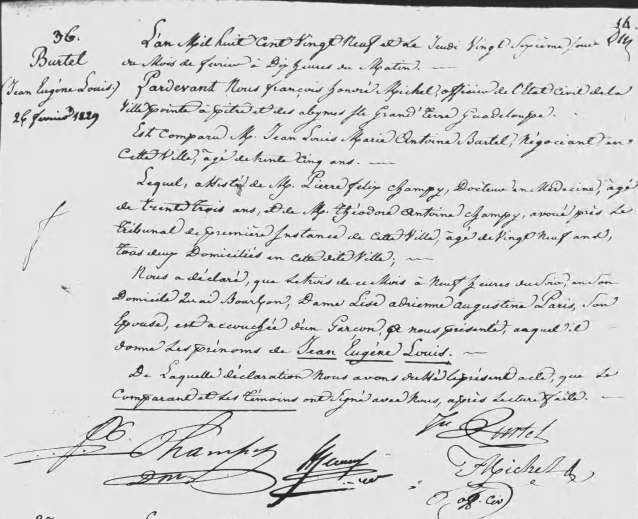 36.
Burtel
(Jean Eugène Louis.)
26 février 1829
L'an Mil huit Cent Vingt Neuf et le Jeudi Vingt Sixième Jour
du Mois de février à Dix heures du Matin. —
Pardevant Nous françois honoré Michel, officier de l'Etat Civil de la
Ville pointe à pitre et des abymes Ile Grand'terre Guadeloupe.
Est Comparu M. Jean Louis Marie Antoine Burtel, Négociant en
Cette Ville, âgé de trente Cinq ans. —
Lequel, assisté de M. Pierre félix Champy, Docteur en Médecine, âgé
de trente trois ans, et de M. Théodore Antoine Champy, avoué près le
Tribunal de première Instance de Cette Ville, âgé de Vingt Neuf ans,
tous deux Domiciliés en Cette dite Ville; —
Nous a déclaré, que le trois de ce Mois à Neuf heures du Soir, en Son
Domicile Bourbon, Dame Lise adrienne augustine Paris, Son
Epouse, est accouchée d'un Garçon, nous présenté, auquel il
donne les prénoms de Jean Eugène Louis. —
De Laquelle déclaration Nous avons dressé le présent acte, que le
Comparant et les témoins ont Signé avec Nous, après Lecture faite. —
Champy
Burtel
Michel
off. Civ